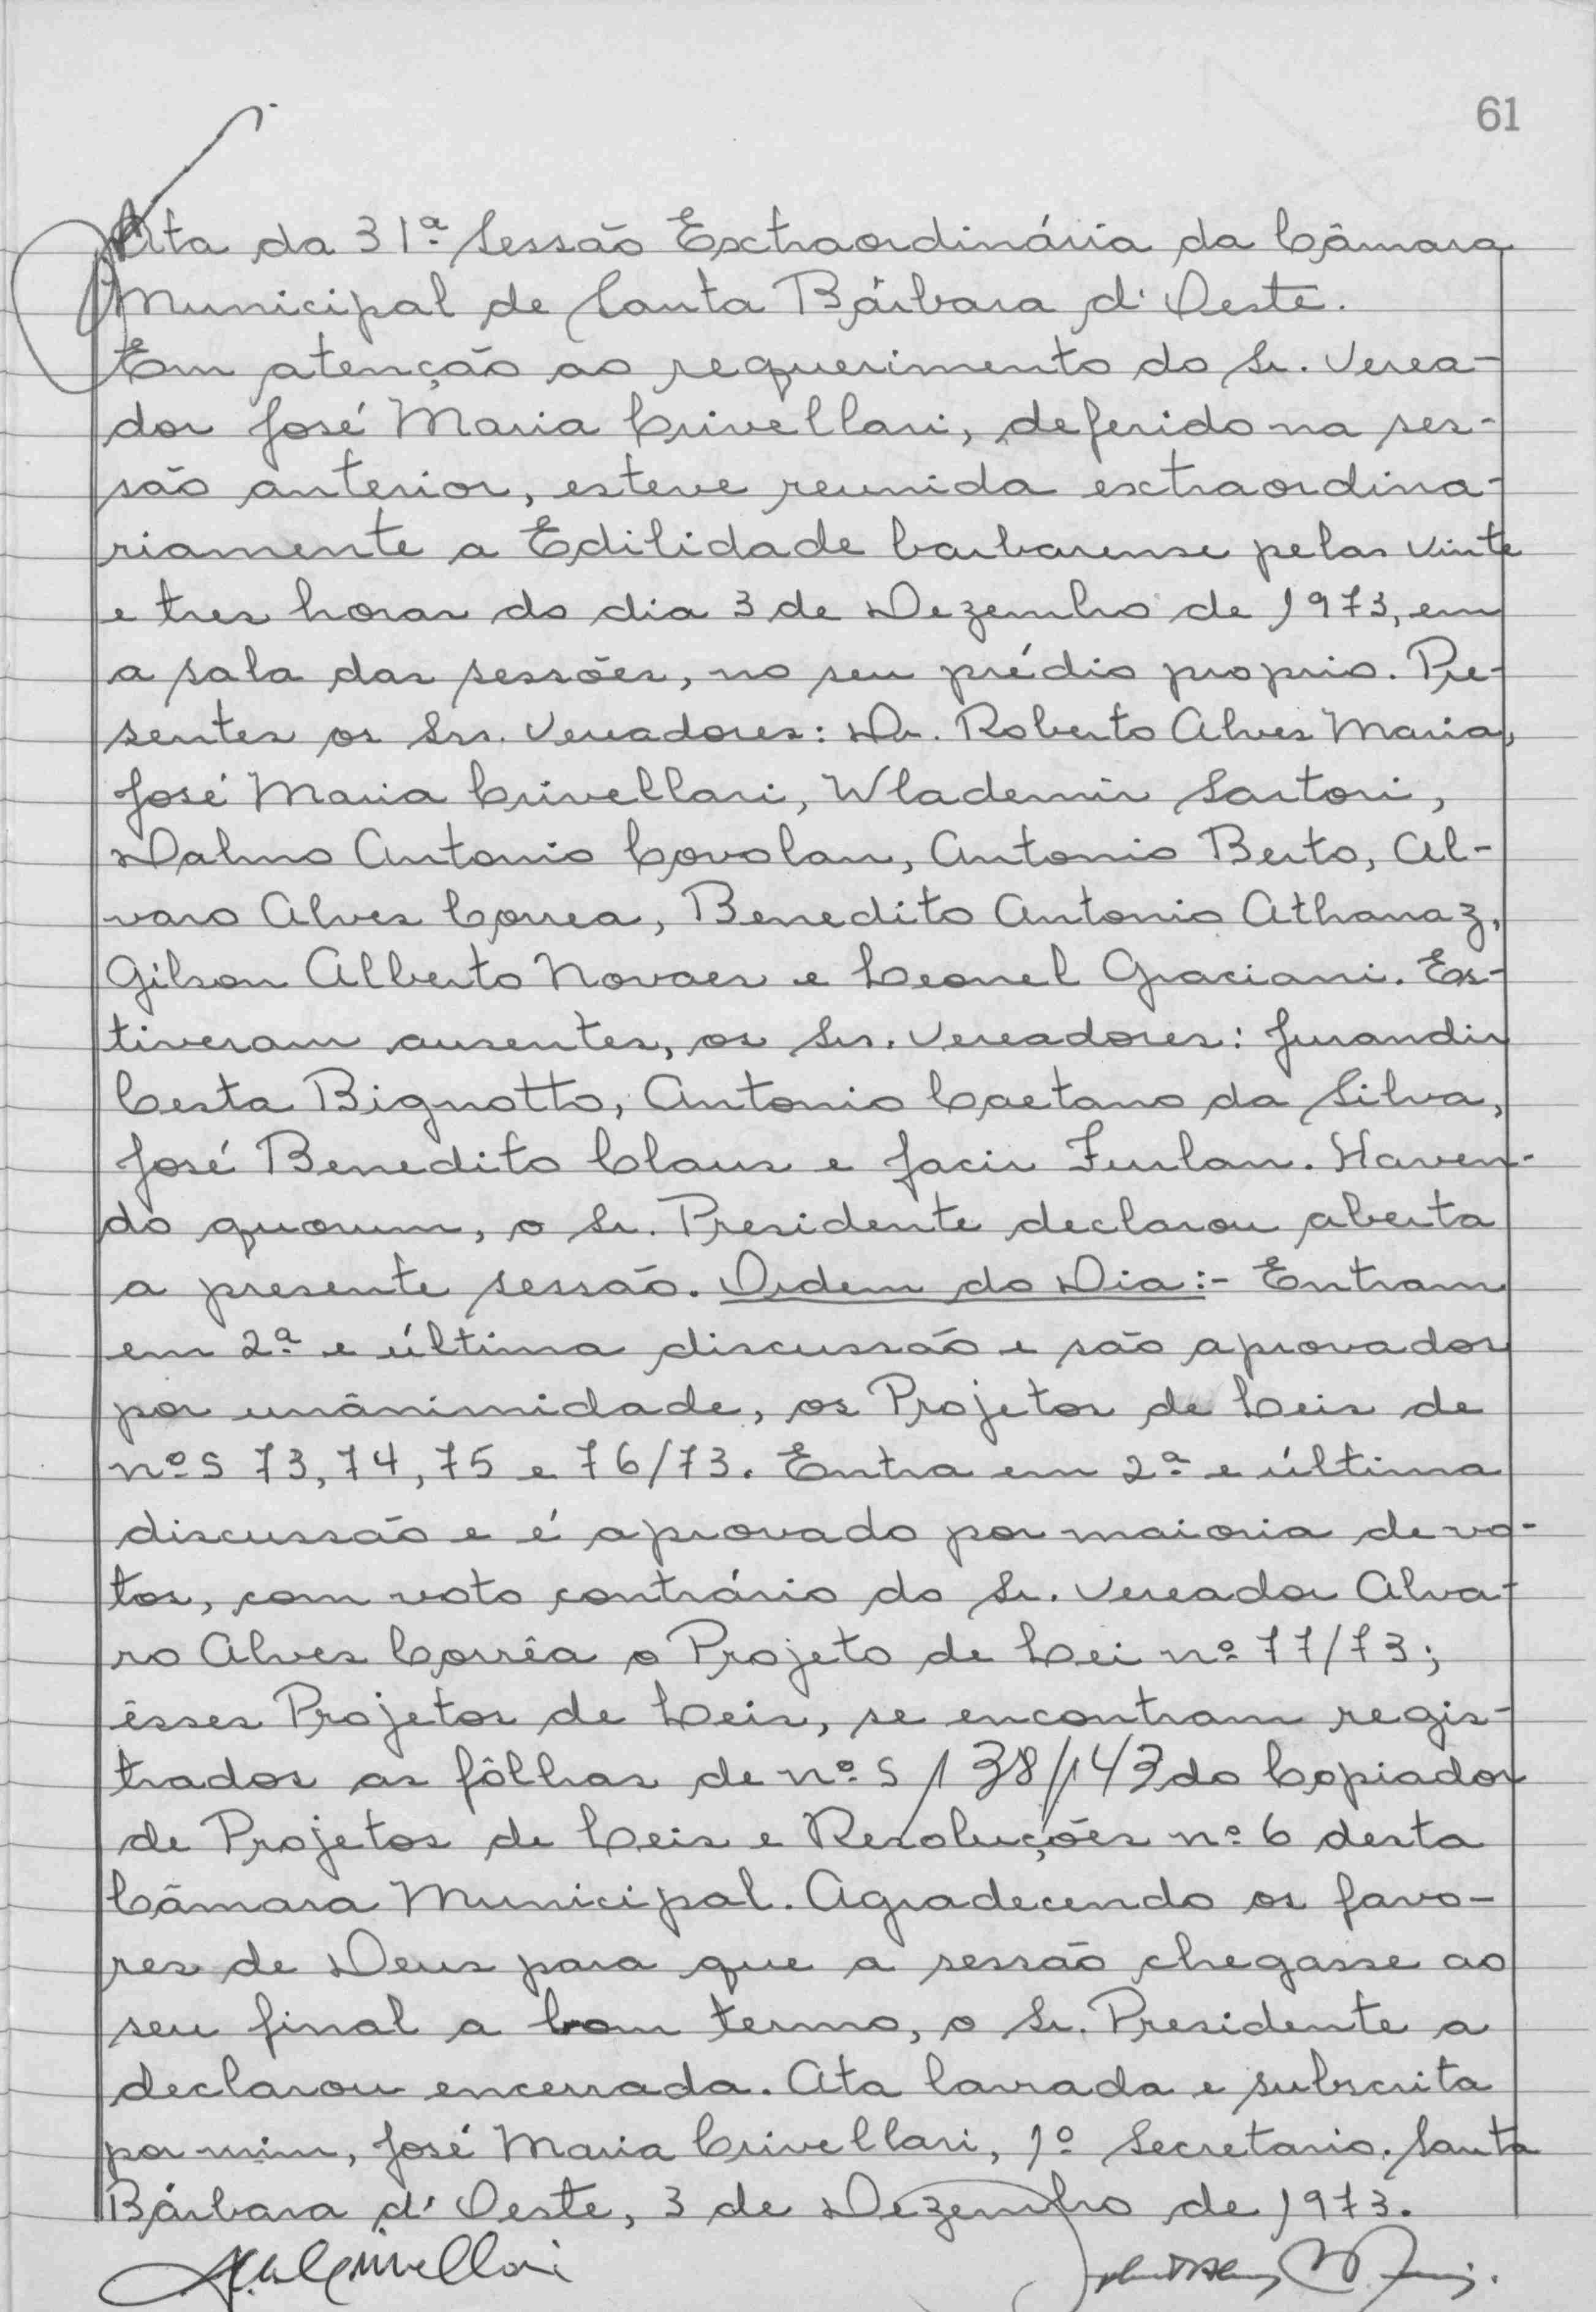 61
Ata da 31ª Sessão Extraordinária da Câmara
Municipal de Santa Bárbara d'Oeste.
Em atenção ao requerimento do Sr. Verea-
dor José Maria Crivellari, deferido na ses-
são anterior, esteve reunida extraordina-
riamente a Edilidade barbarense pelas vinte
e tres horas do dia 3 de Dezembro de 1973, em
a sala das sessões, no seu prédio proprio. Pre-
sentes os Srs. Vereadores: Dr. Roberto Alves Maria,
José Maria Crivellari, Wlademir Sartori,
Dalmo Antonio Covolan, Antonio Berto, Al-
varo Alves Correa, Benedito Antonio Athanaz,
Gilson Alberto Novaes e Leonel Graciani. Es-
tiveram ausentes, os Srs. Vereadores: Jurandir
Cesta Bignotto, Antonio Caetano da Silva,
José Benedito Claus e Jacir Furlan. Haven-
do quorum, o Sr. Presidente declarou aberta
a presente sessão. Ordem do Dia:- Entram
em 2ª e última discussão e são aprovados
por unânimidade, os Projetos de Leis de
nºs 73, 74, 75 e 76/73. Entra em 2ª e última
discussão e é aprovado por maioria de vo-
tos, com voto contrário do Sr. Vereador Alva-
ro Alves Corrêa o Projeto de Lei nº 77/73;
êsses Projetos de Leis, se encontram regis-
trados as fôlhas de nºs 138/143 do Copiador
de Projetos de Leis e Resoluções nº 6 desta
Câmara Municipal. Agradecendo os favo-
res de Deus para que a sessão chegasse ao
seu final a bom termo, o Sr. Presidente a
declarou encerrada. Ata lavrada e subscrita
por mim, José Maria Crivellari, 1º Secretario. Santa
Bárbara d'Oeste, 3 de Dezembro de 1973.